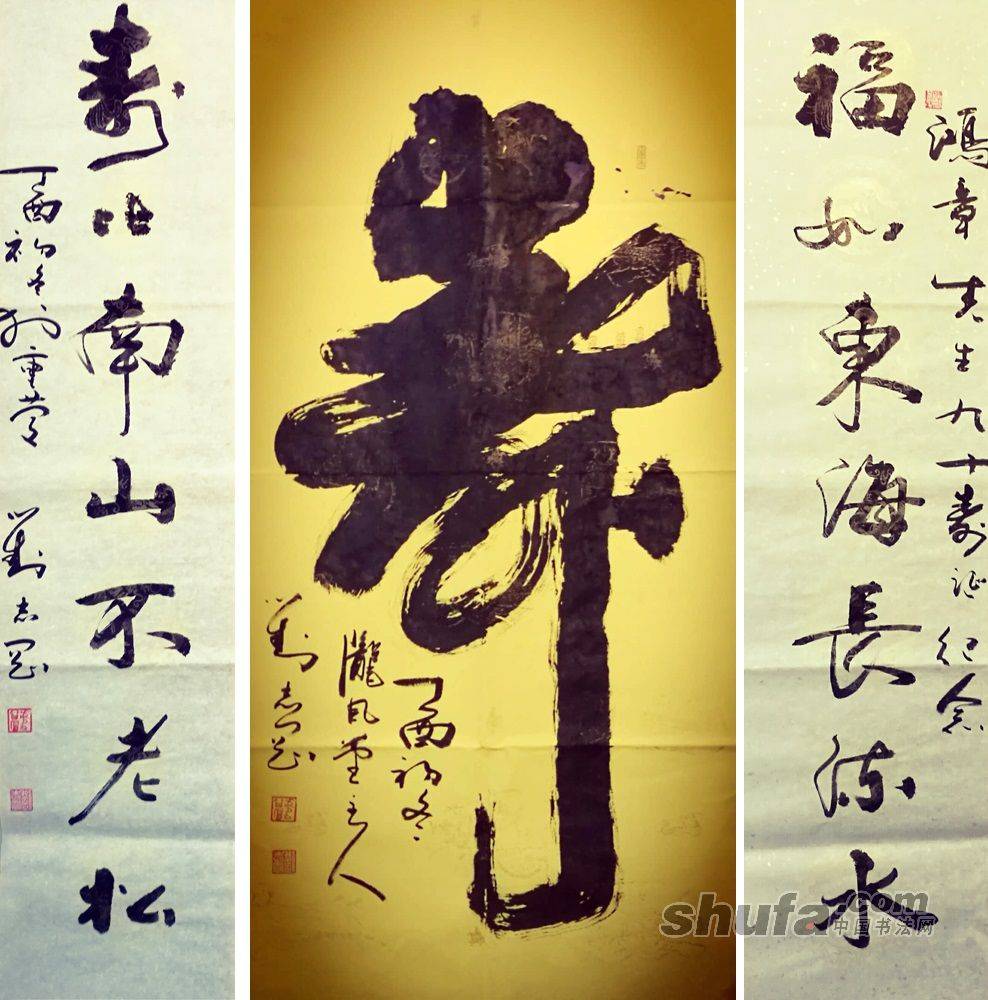 鴻章 先生九十壽誕紀念
福如東海長流水
壽
丁酉初冬
堂主人
劉志
壽比南山不老松
丁酉初冬於重
劉志
shufa.com
中国书法网